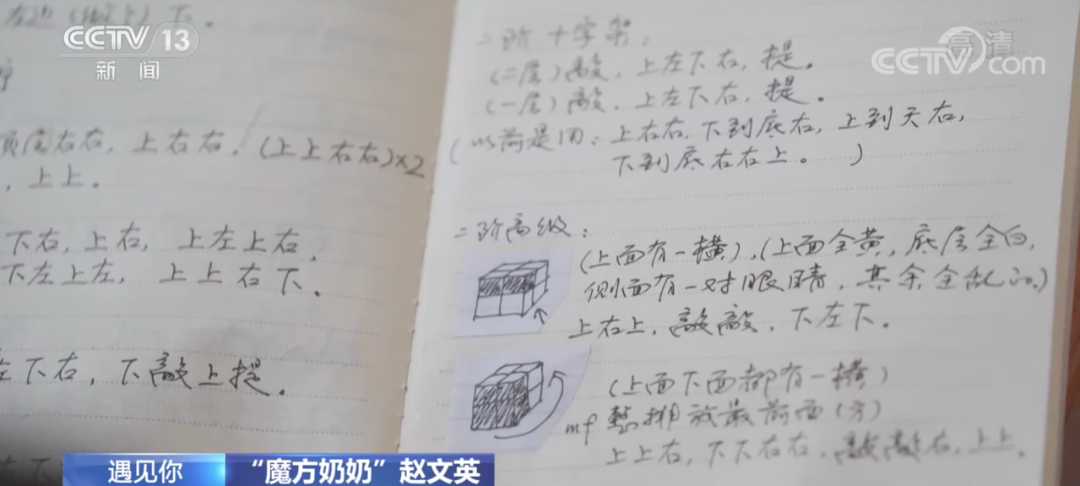 CCTV 13
新闻
高清
CCTV com
右边
下。
顶层右右，上右右，(上上右右)×2
，上上。
下右，上右，上左上右，
下左上左，上上右下。
左下右，下敲上提。
二阶十字架：
(二层)敲，上左下右，提。
(一层)敲，上左下右，提。
(以前是用：上右右，下到底右，上到天右，
下到底右右上。)
二阶高级：
(上面有一横)，(上面全黄，底层全白，
侧面有一对眼睛，其余全乱的)
上右上，敲敲，下左下。
(上面下面都有一横)
整排放最前面(方)
上上右，下下右右，敲敲右，上上。
遇见你
“魔方奶奶”赵文英